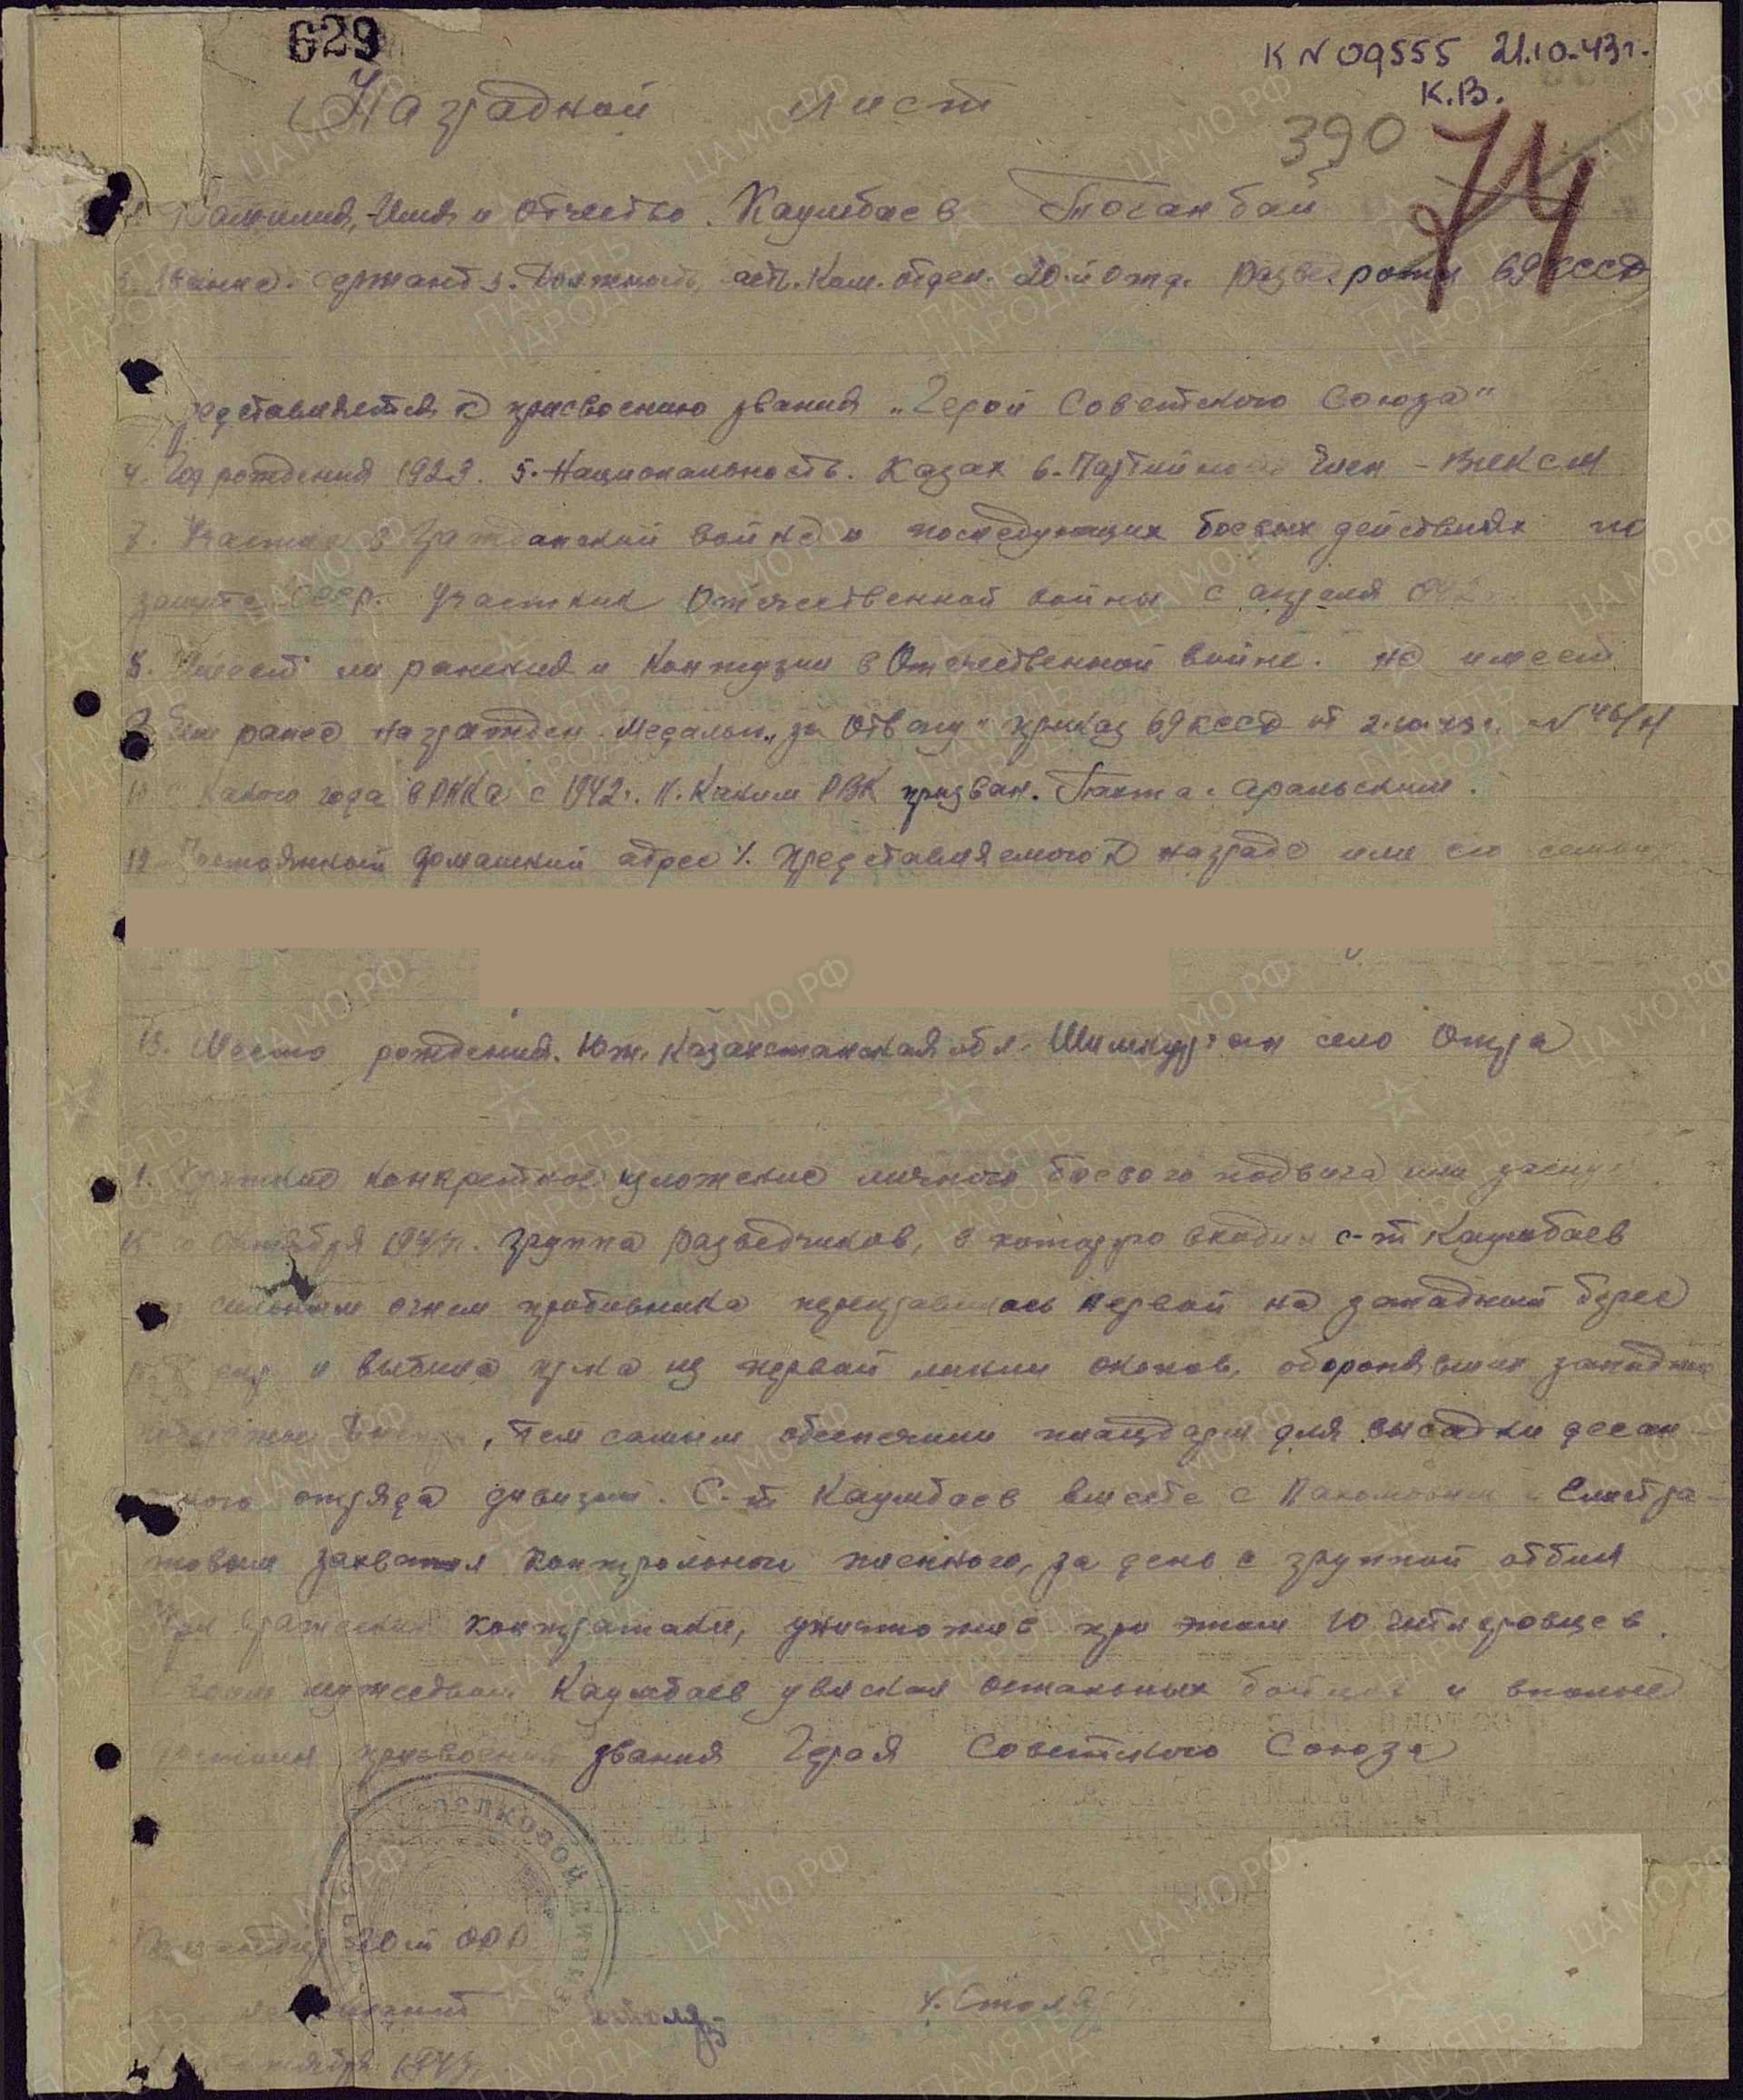 629
К N 09555 21.10.43г.
К.В.
390
74
Наградной лист
Фамилия, Имя и Отчество. Каумбаев Тоганбай
Звание. Сержант 3. Должность, Ком. отдел. 20-й отд. развед. роты 69 КССД
редставляется к присвоению звания „Герой Советского Союза"
4. Год рождения 1923. 5. Национальность. Казах 6. Партийность Член - ВЛКСМ
7. Участие в Гражданской войне и последующих боевых действиях по
защите СССР. Участник Отечественной войны с апреля 1942 г.
8. Имеет ли ранения и контузии в Отечественной войне. не имеет
9. Чем ранее награжден. Медалью „за Отвагу" приказ 69 КССД от 2.10.43 г. N 46/н
10 С Какого года в РККА с 1942 г. 11. Каким РВК призван. Пахта-Аральским.
12. Постоянный домашний адрес представляемого к награде или его семьи
13. Место рождения. Юж. Казахстанская обл. село
1. Краткое конкретное изложение личного боевого подвига или заслуг
15 октября 1943 г. группа разведчиков, в которую входил с-т Каумбаев
сильным огнем противника переправилась первой на западный берег
и выбила пр-ка из первой линии окопов, оборонявших западное
побережье Днепра, тем самым обеспечили плацдарм для высадки десан-
тного отряда дивизии. С-т Каумбаев вместе с Пахомовым и Елистра-
товым захватил контрольного пленного, за день с группой отбил
три вражеские контратаки, уничтожив при этом 10 гитлеровцев.
Своим мужеством Каумбаев увлекал остальных бойцов и вполне
достоин присвоения звания Героя Советского Союза
Командир 20-й ОРР
октября 1943 г.
стрелковой дивизи
ЦА МО РФ
ПАМЯТЬ НАРОДА